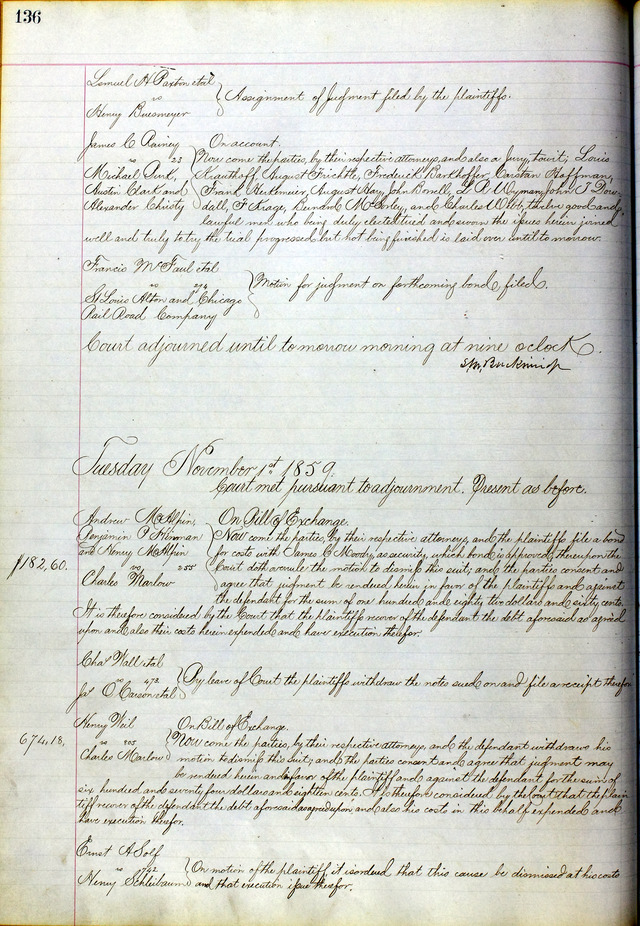 136
Lemuel H Paxton etal
vs } Assignment of Judgment filed by the plaintiffs.
Henry Buesmeyer
James C Rainey On account.
vs 23 Now come the parties, by their respective attorneys, and also a Jury, towit; Louis
Michael August Frederick Barkhoffer, Hoffman,
Austin Clark and Frank August May, John L R Wyman, John T Dow-
Alexander Christy dall, F and Charles twelve good and
lawful men who being duly elected tried and sworn the issues herein joined
well and truly to try the trial progressed but not being finished is laid over until to morrow.
Francis McFaul etal
vs } Motion for judgment on forthcoming bond, filed.
St Louis Alton and Chicago
Rail Road Company
Court adjourned until to morrow morning at nine oclock.
Tuesday November 1st 1859.
Court met pursuant to adjournment. Present as before.
Andrew McAlpin, On Bill of Exchange.
Benjamin P Now come the parties, by their respective attorneys, and the plaintiffs file a bond
and Henry McAlpin for costs with James C Moody, as security, which bond is approved, thereupon the
$182,60. vs 255 Court doth overrule the motion to dismiss this suit; and the parties consent and
Charles Marlow agree that judgment be rendered herein in favor of the plaintiffs and against
the defendant for the sum of one hundred and eighty two dollars and sixty cents.
It is therefore considered by the Court that the plaintiffs recover of the defendant the debt aforesaid as agreed
upon and also their costs herein expended and have execution therefor.
Chas Wall etal
vs 473 } By leave of Court the plaintiffs withdraw the notes sued on and file a receipt therefor
Jas O'Carson etal
Henry Weil On Bill of Exchange.
674,18. vs Now come the parties, by their respective attorneys, and the defendant withdraws his
Charles Marlow motion to dismiss this suit; and the parties consent and agree that judgment may
be rendered herein in favor of the plaintiff and against the defendant for the sum of
six hundred and seventy four dollars and eighteen cents. It is therefore considered by the Court that the plain
tiff recover of the defendant the debt aforesaid as agreed upon, and also his costs in this behalf expended and
have execution therefor.
Ernst A Solf
vs } On motion of the plaintiff, it is ordered that this cause be dismissed at his costs
Henry Schleibaum and that execution issue therefor.